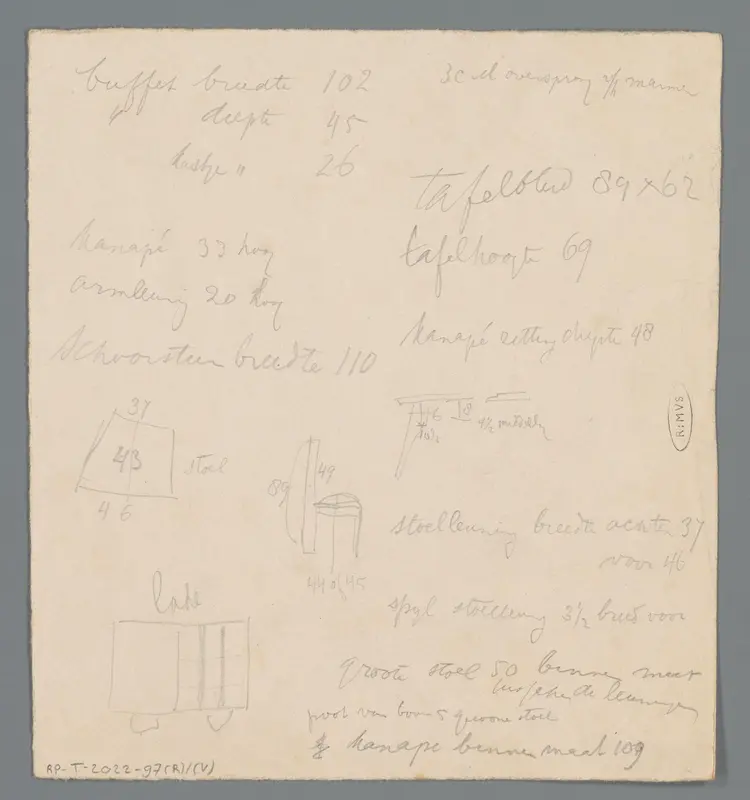 buffet breedte 102
" diepte 45
kastje " 26
3 c M overspring v/h marmer
tafelblad 89 x 62
tafelhoogte 69
kanapé 33 hoog
armleuning 20 hoog
kanapé zitting diepte 48
Schoorsteen breedte 110
37
43
stoel
46
16
8
4 1/2 middely
R:MVS
89
49
44 of 45
stoelleuning breedte achter 37
voor 46
spyl stoelleuning 3 1/2 breed voor
groote stoel 50 binnen maat
tusschen de leuningen
poot van boven 5 gewone stoel
kanape binnen maat 109
RP-T-2022-97(R)/(V)